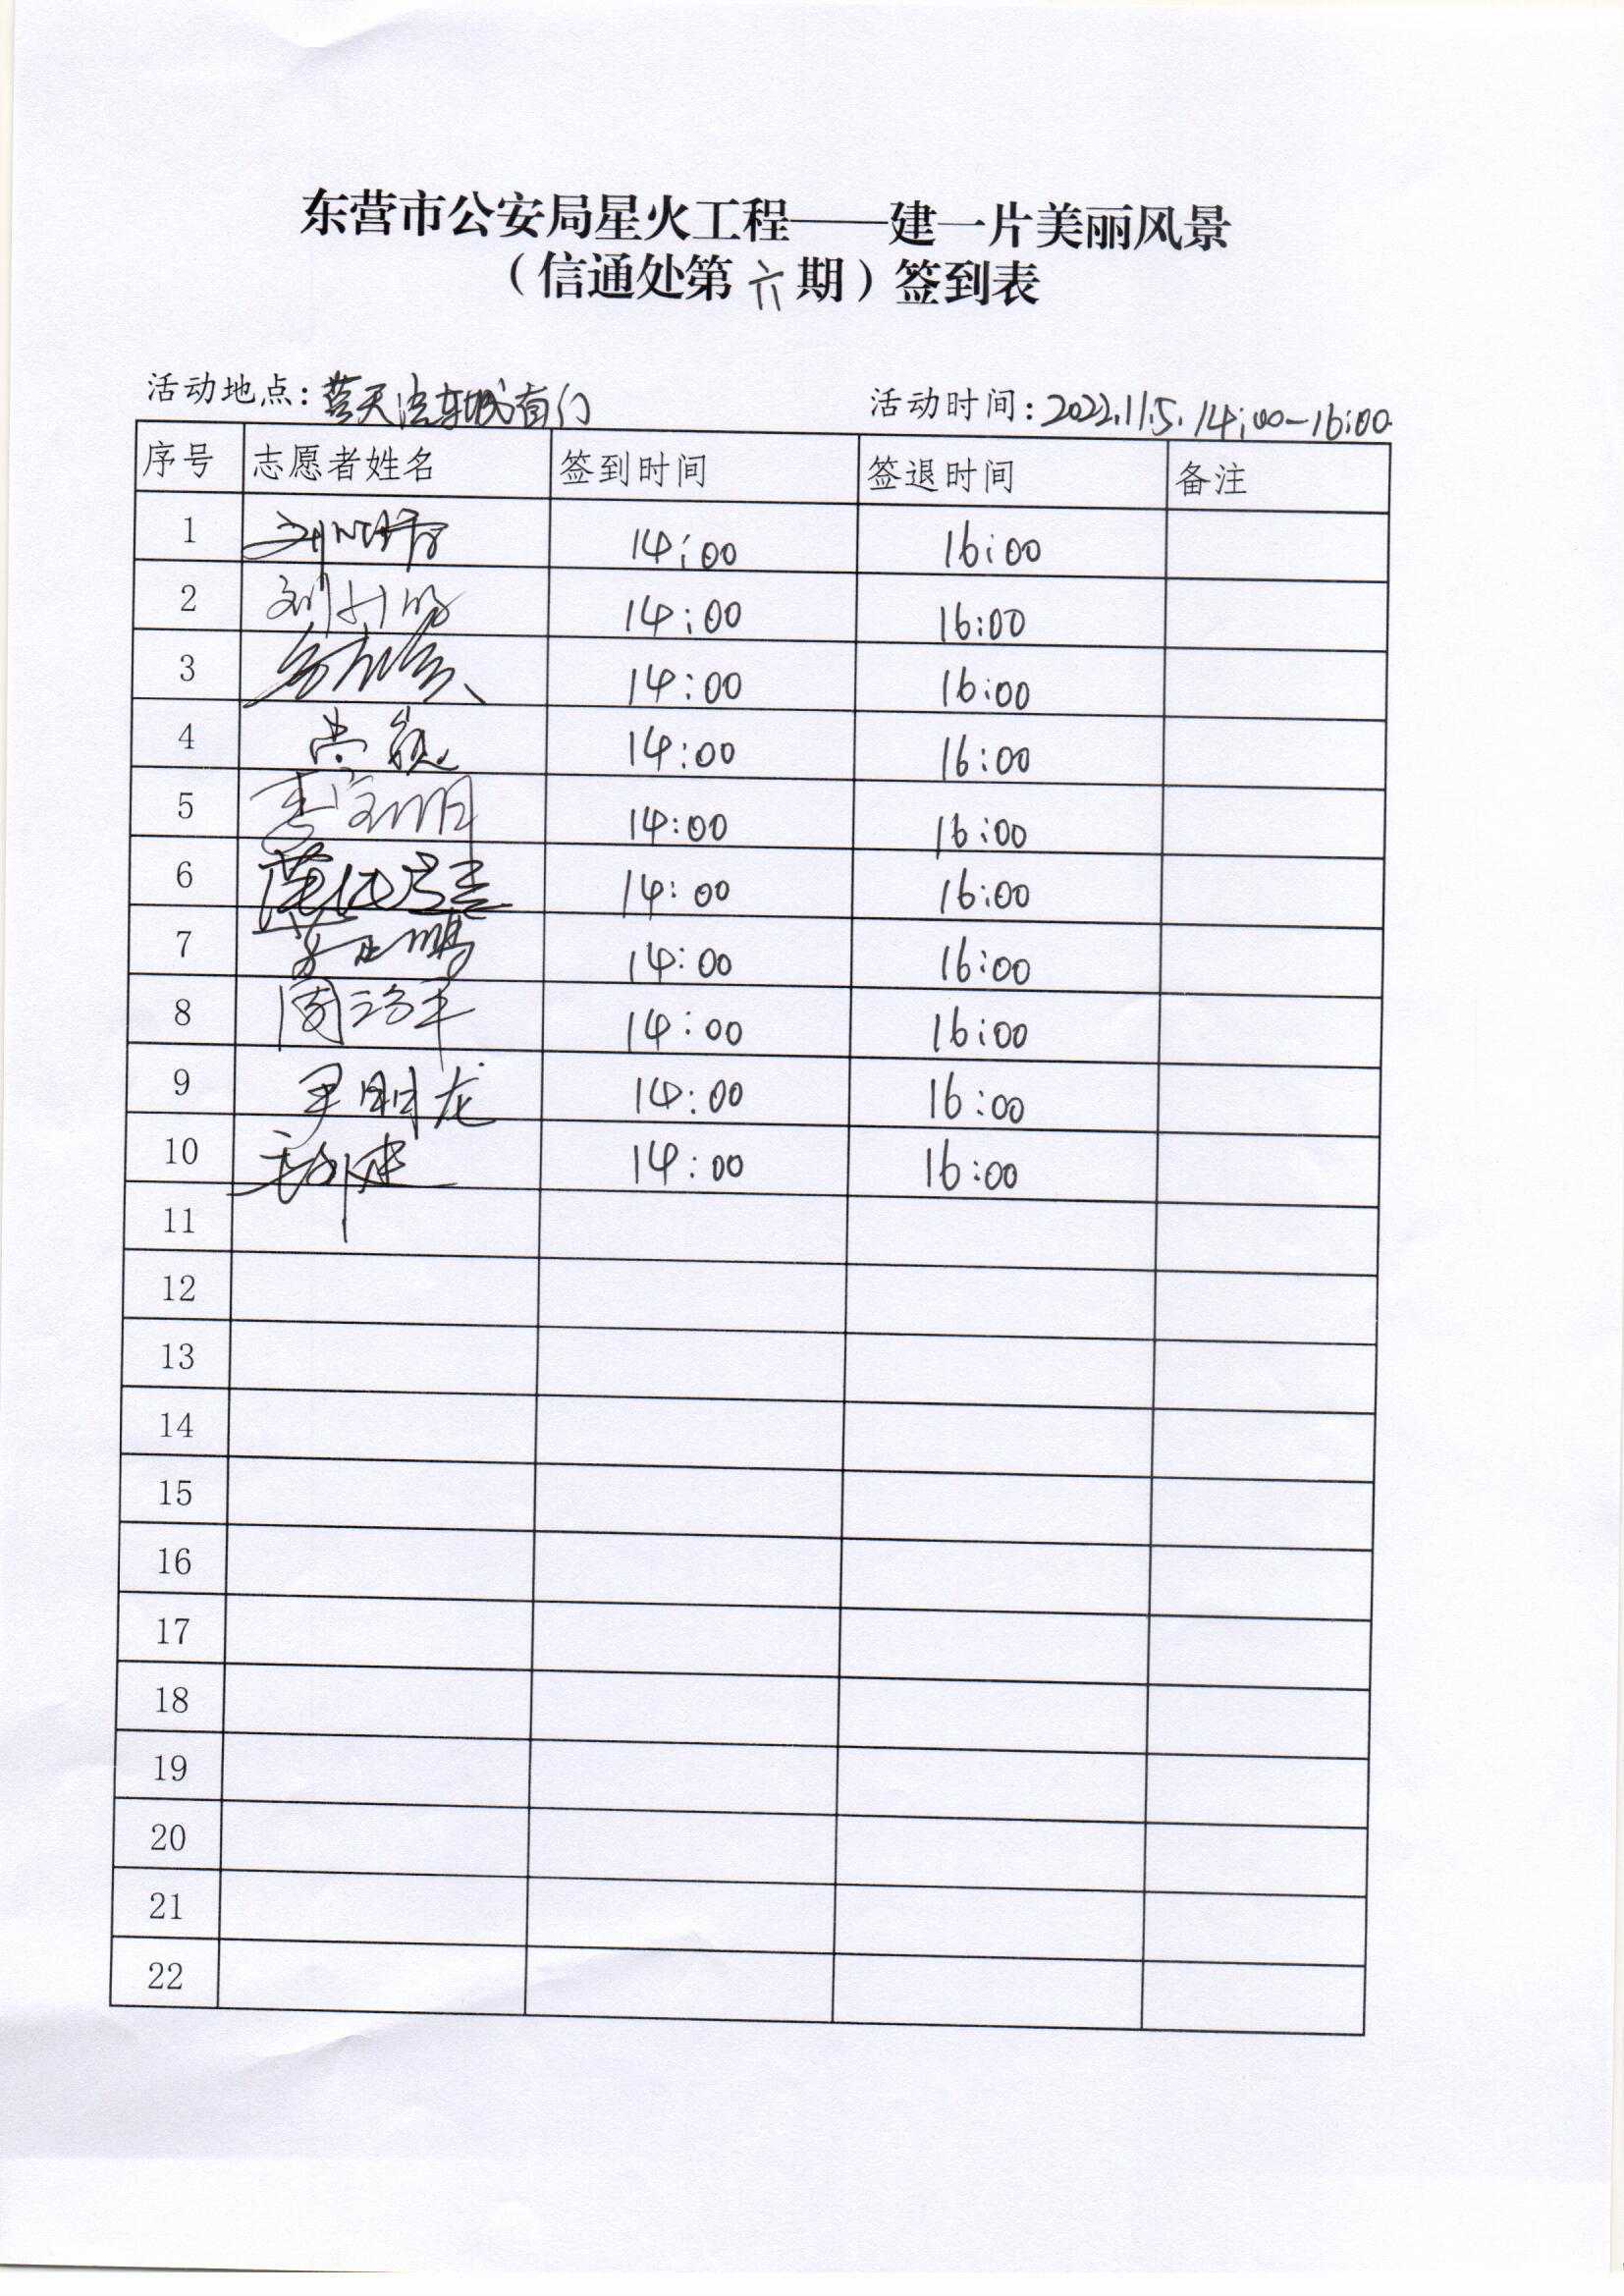 东营市公安局星火工程——建一片美丽风景
（信通处第六期）签到表
活动地点: 蓝天汽车城南门 活动时间: 2022.11.5. 14:00-16:00
序号 志愿者姓名 签到时间 签退时间 备注
1 14:00 16:00
2 14:00 16:00
3 14:00 16:00
4 尚巍 14:00 16:00
5 14:00 16:00
6 14:00 16:00
7 14:00 16:00
8 14:00 16:00
9 尹朋龙 14:00 16:00
10 14:00 16:00
11
12
13
14
15
16
17
18
19
20
21
22